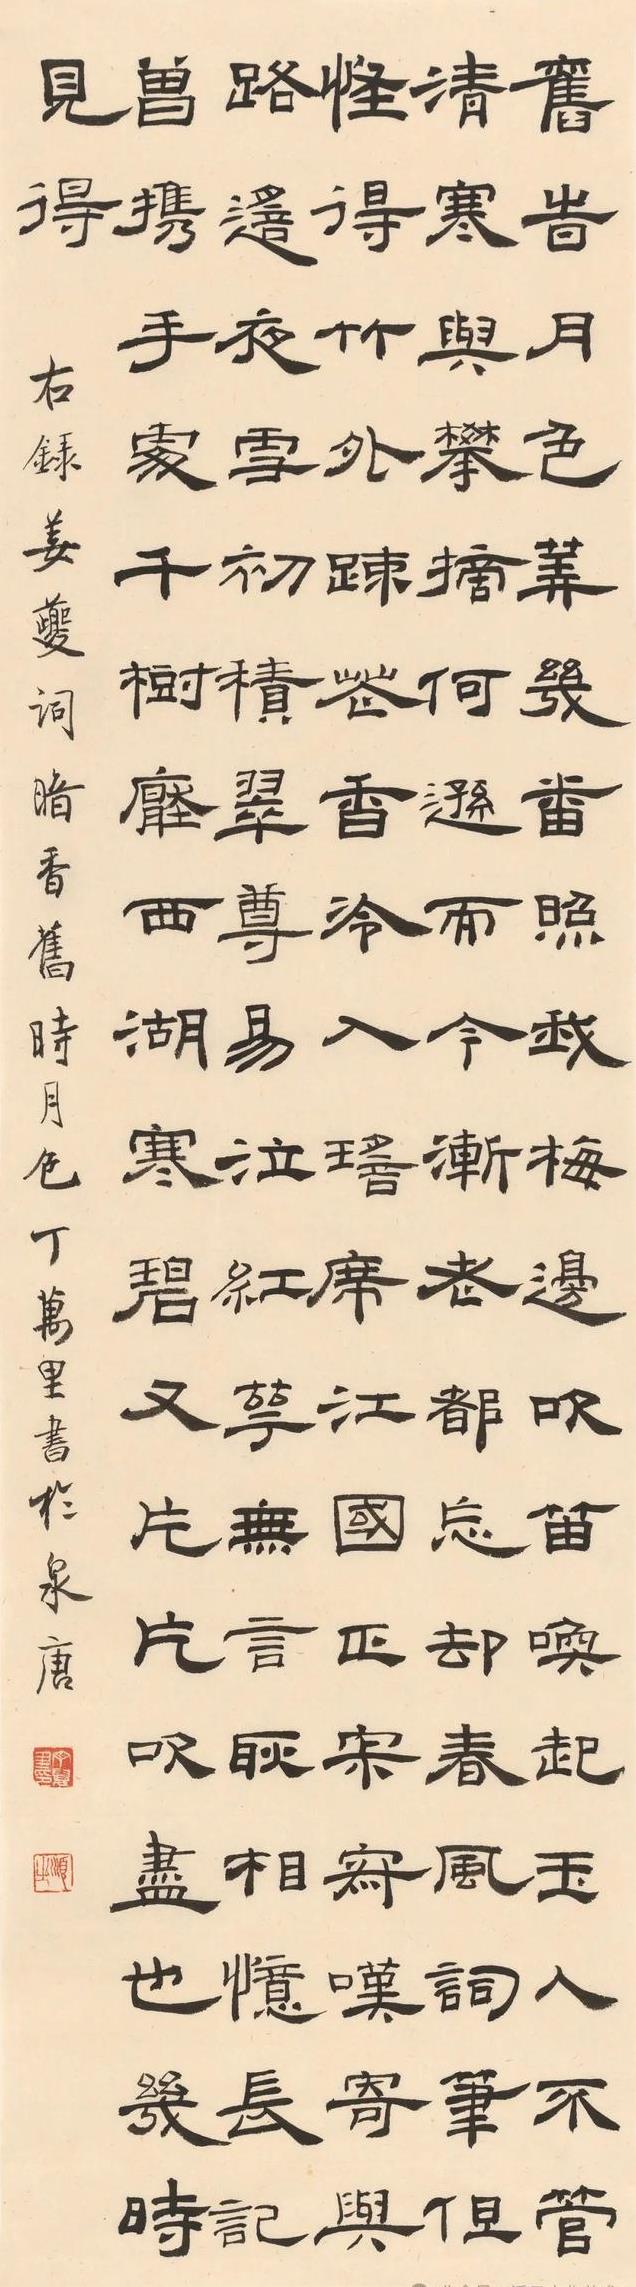 舊旹月色筭幾番照我梅邊吹笛喚起玉人不管
清寒與攀摘何遜而今漸老都忘却春風詞筆但
怪得竹外疎花香冷入瑤席江國正寂寂嘆寄與
路遙夜雪初積翠尊易泣紅萼無言耿相憶長記
曾携手處千樹壓西湖寒碧又片片吹盡也幾時
見得
右録姜夔詞暗香舊時月色丁萬里書於泉唐